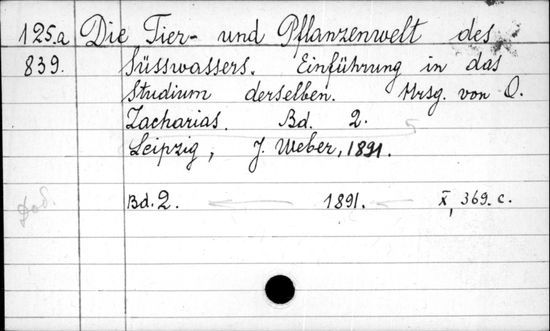 125.a Die Tier- und Pflanzenwelt des
839. Süsswassers. Einführung in das
Studium derselben. Hrsg. von O.
Zacharias. Bd. 2.
Leipzig, J. Weber, 1891.
Bd. 2. 1891. X, 369. c.